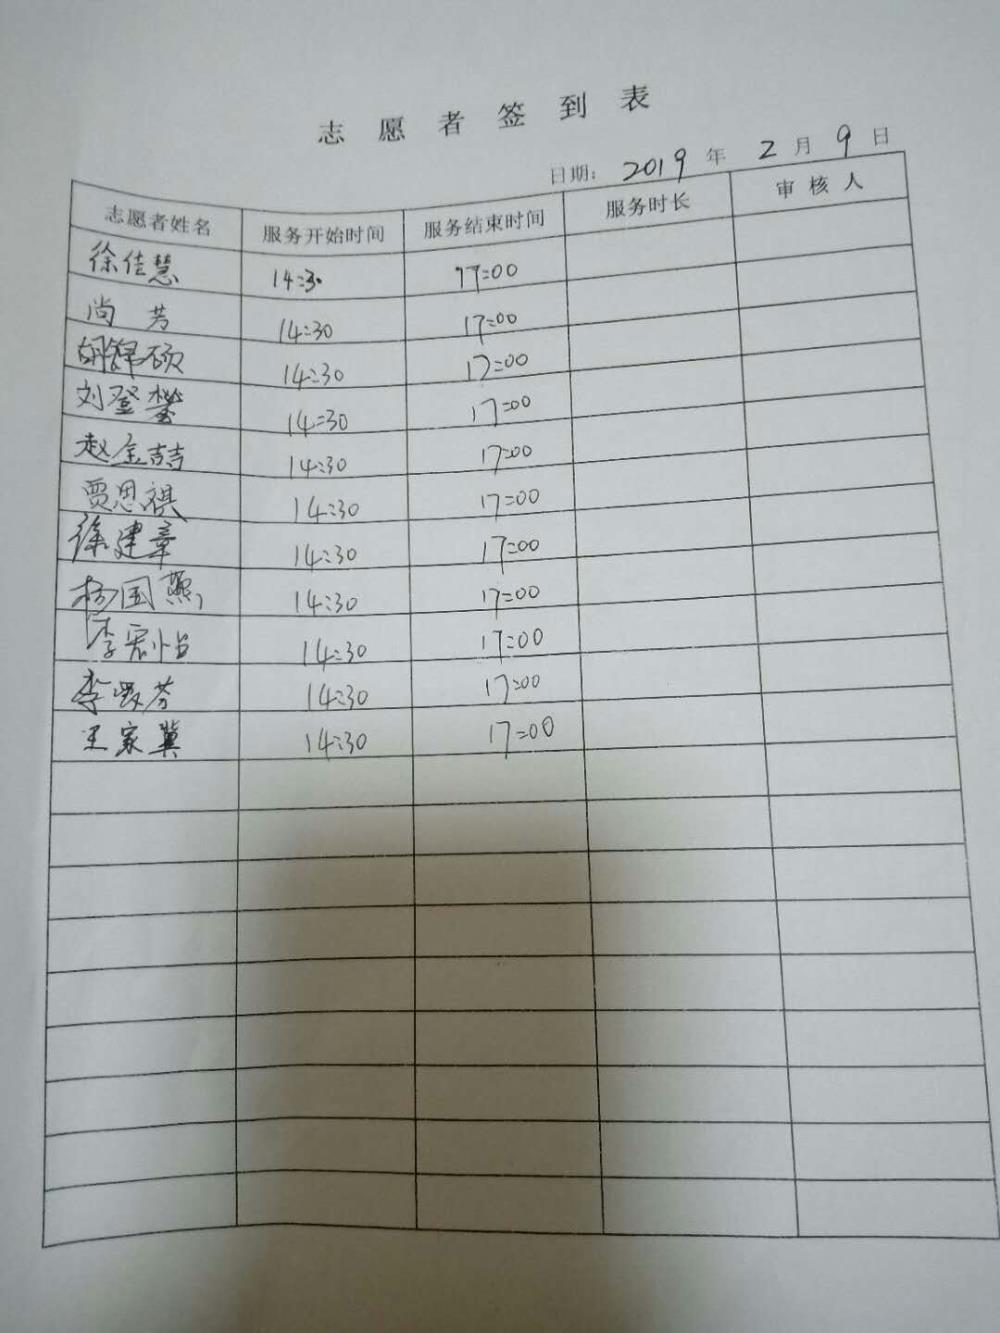 志愿者签到表
日期: 2019 年 2 月 9 日
志愿者姓名 服务开始时间 服务结束时间 服务时长 审核人
徐佳慧 14:30 17:00
尚芳 14:30 17:00
胡锦硕 14:30 17:00
刘登攀 14:30 17:00
赵金喆 14:30 17:00
贾思祺 14:30 17:00
徐建章 14:30 17:00
杨国燕 14:30 17:00
李宏怡 14:30 17:00
李 芬 14:30 17:00
王家冀 14:30 17:00